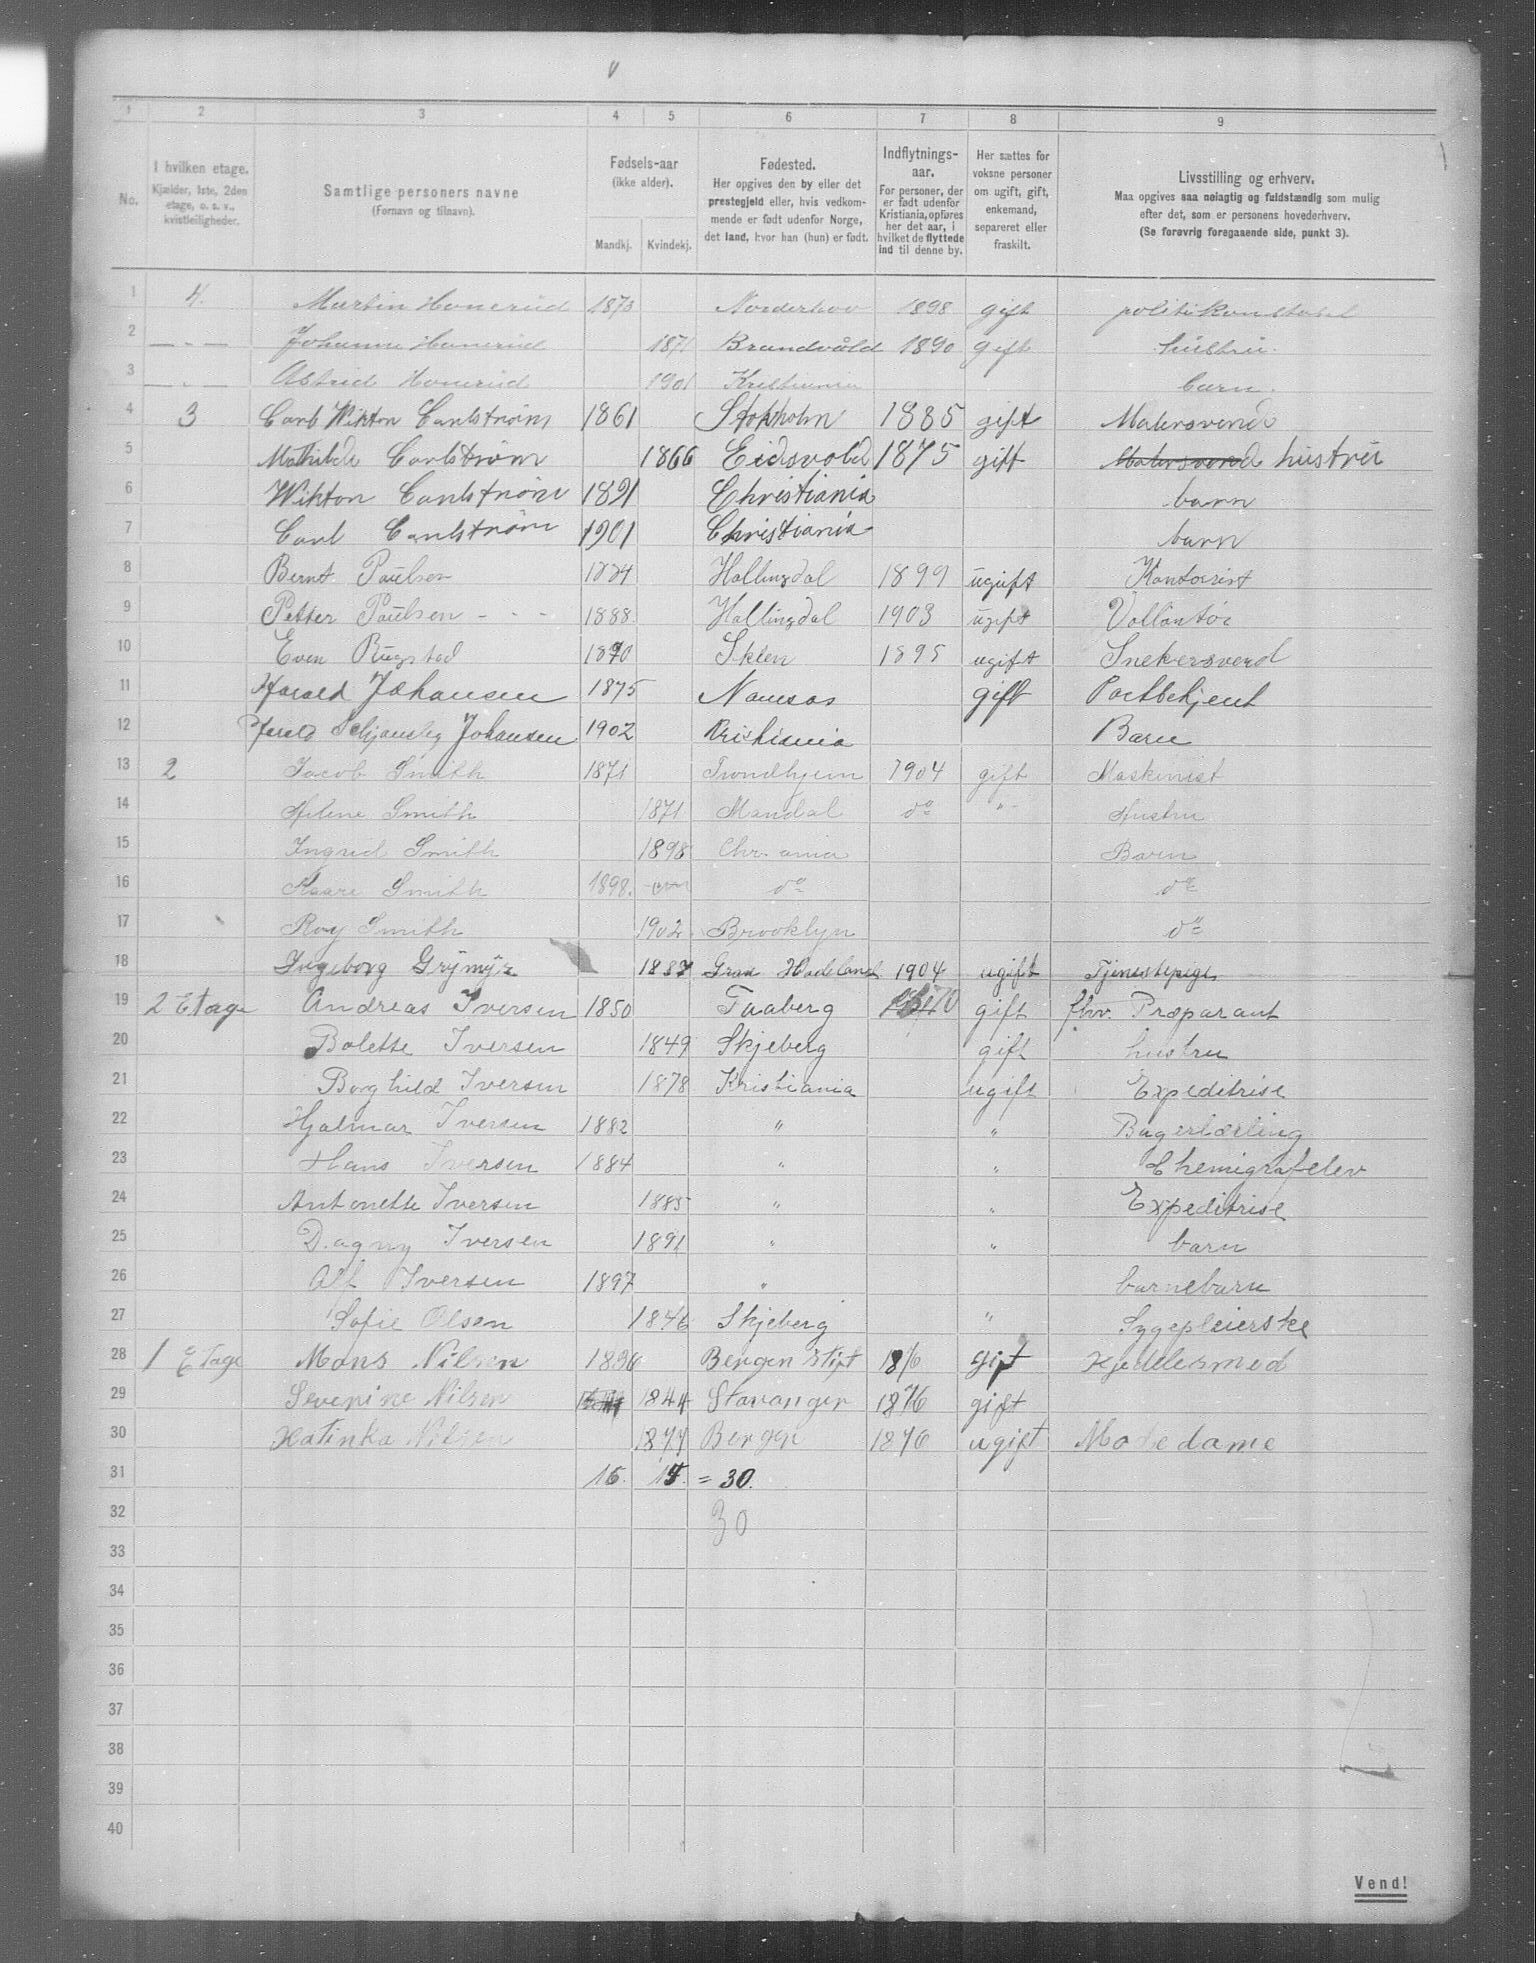 1 2 3 4 5 6 7 8 9
No. I hvilken etage. Kjælder, 1ste, 2den etage, o. s. v., kvistleiligheder. Samtlige personers navne (Fornavn og tilnavn). Fødsels-aar (ikke alder). Mandkj. Kvindekj. Fødested. Her opgives den by eller det prestegjeld eller, hvis vedkommende er født udenfor Norge, det land, hvor han (hun) er født. Indflytnings-aar. For personer, der er født udenfor Kristiania, opføres her det aar, i hvilket de flyttede ind til denne by. Her sættes for voksne personer om ugift, gift, enkemand, separeret eller fraskilt. Livsstilling og erhverv. Maa opgives saa nøiagtig og fuldstændig som mulig efter det, som er personens hovederhverv. (Se forøvrig foregaaende side, punkt 3).
1 4. Martin Honerud 1873 Norderhov 1898 gift politikonstabel
2 — " — Johanne Honerud 1871 Brandvåld 1890 gift hustru.
3 — " — Astrid Honerud 1901 Kristiania barn.
4 3 Carl Wiktor Carlstrøm 1861 Stokholm 1885 gift Malersvend
5 Mathilde Carlstrøm 1866 Eidsvold 1875 gift Malersvend hustru
6 Wiktor Carlstrøm 1891 Christiania barn
7 Carl Carlstrøm 1901 Christiania barn
8 Bernt Paulsen 1884 Hallingdal 1899 ugift Kontorist
9 Petter Paulsen - - - 1888. Hallingdal 1903 ugift Vollontør
10 Even Rugstad 1870 Skien 1895 ugift Snekersvend
11 Harald Johansen 1875 Namsos gift Postbetjent
12 Harald Johansen 1902 Kristiania Barn
13 2 Jacob Smith 1871 Trondhjem 1904 gift Maskinist
14 Helene Smith 1871 Mandal do " Hustru
15 Ingrid Smith 1898 Chr. ania Barn
16 Kaare Smith 1898. do do
17 Roy Smith 1902 Brooklyn do
18 Ingeborg Grymyr 1887 Gran Hadeland 1904 ugift Tjenestepige
19 2 Etage Andreas Iversen 1850 Faaberg 1870 gift fhv. Præparant
20 Bolette Iversen 1849 Skjeberg gift hustru
21 Borghild Iversen 1878 Kristiania ugift Expeditrise
22 Hjalmar Iversen 1882 " " Bagerlærling
23 Hans Iversen 1884 " " Chemigrafelev
24 Antonette Iversen 1885 " " Expeditrise
25 Dagny Iversen 1891 " " barn
26 Alf Iversen 1897 " barnebarn
27 Sofie Olsen 1846 Skjeberg " Sygepleierske
28 1 Etage Mons Nilsen Bergen stift 1876 gift Kjedelsmed
29 Severine Nilsen 1844 Stavanger 1876 gift
30 Katinka Nilsen 1874 1876 ugift Modedame
31 15. 15. = 30.
32 30
33
34
35
36
37
38
39
40
Vend!